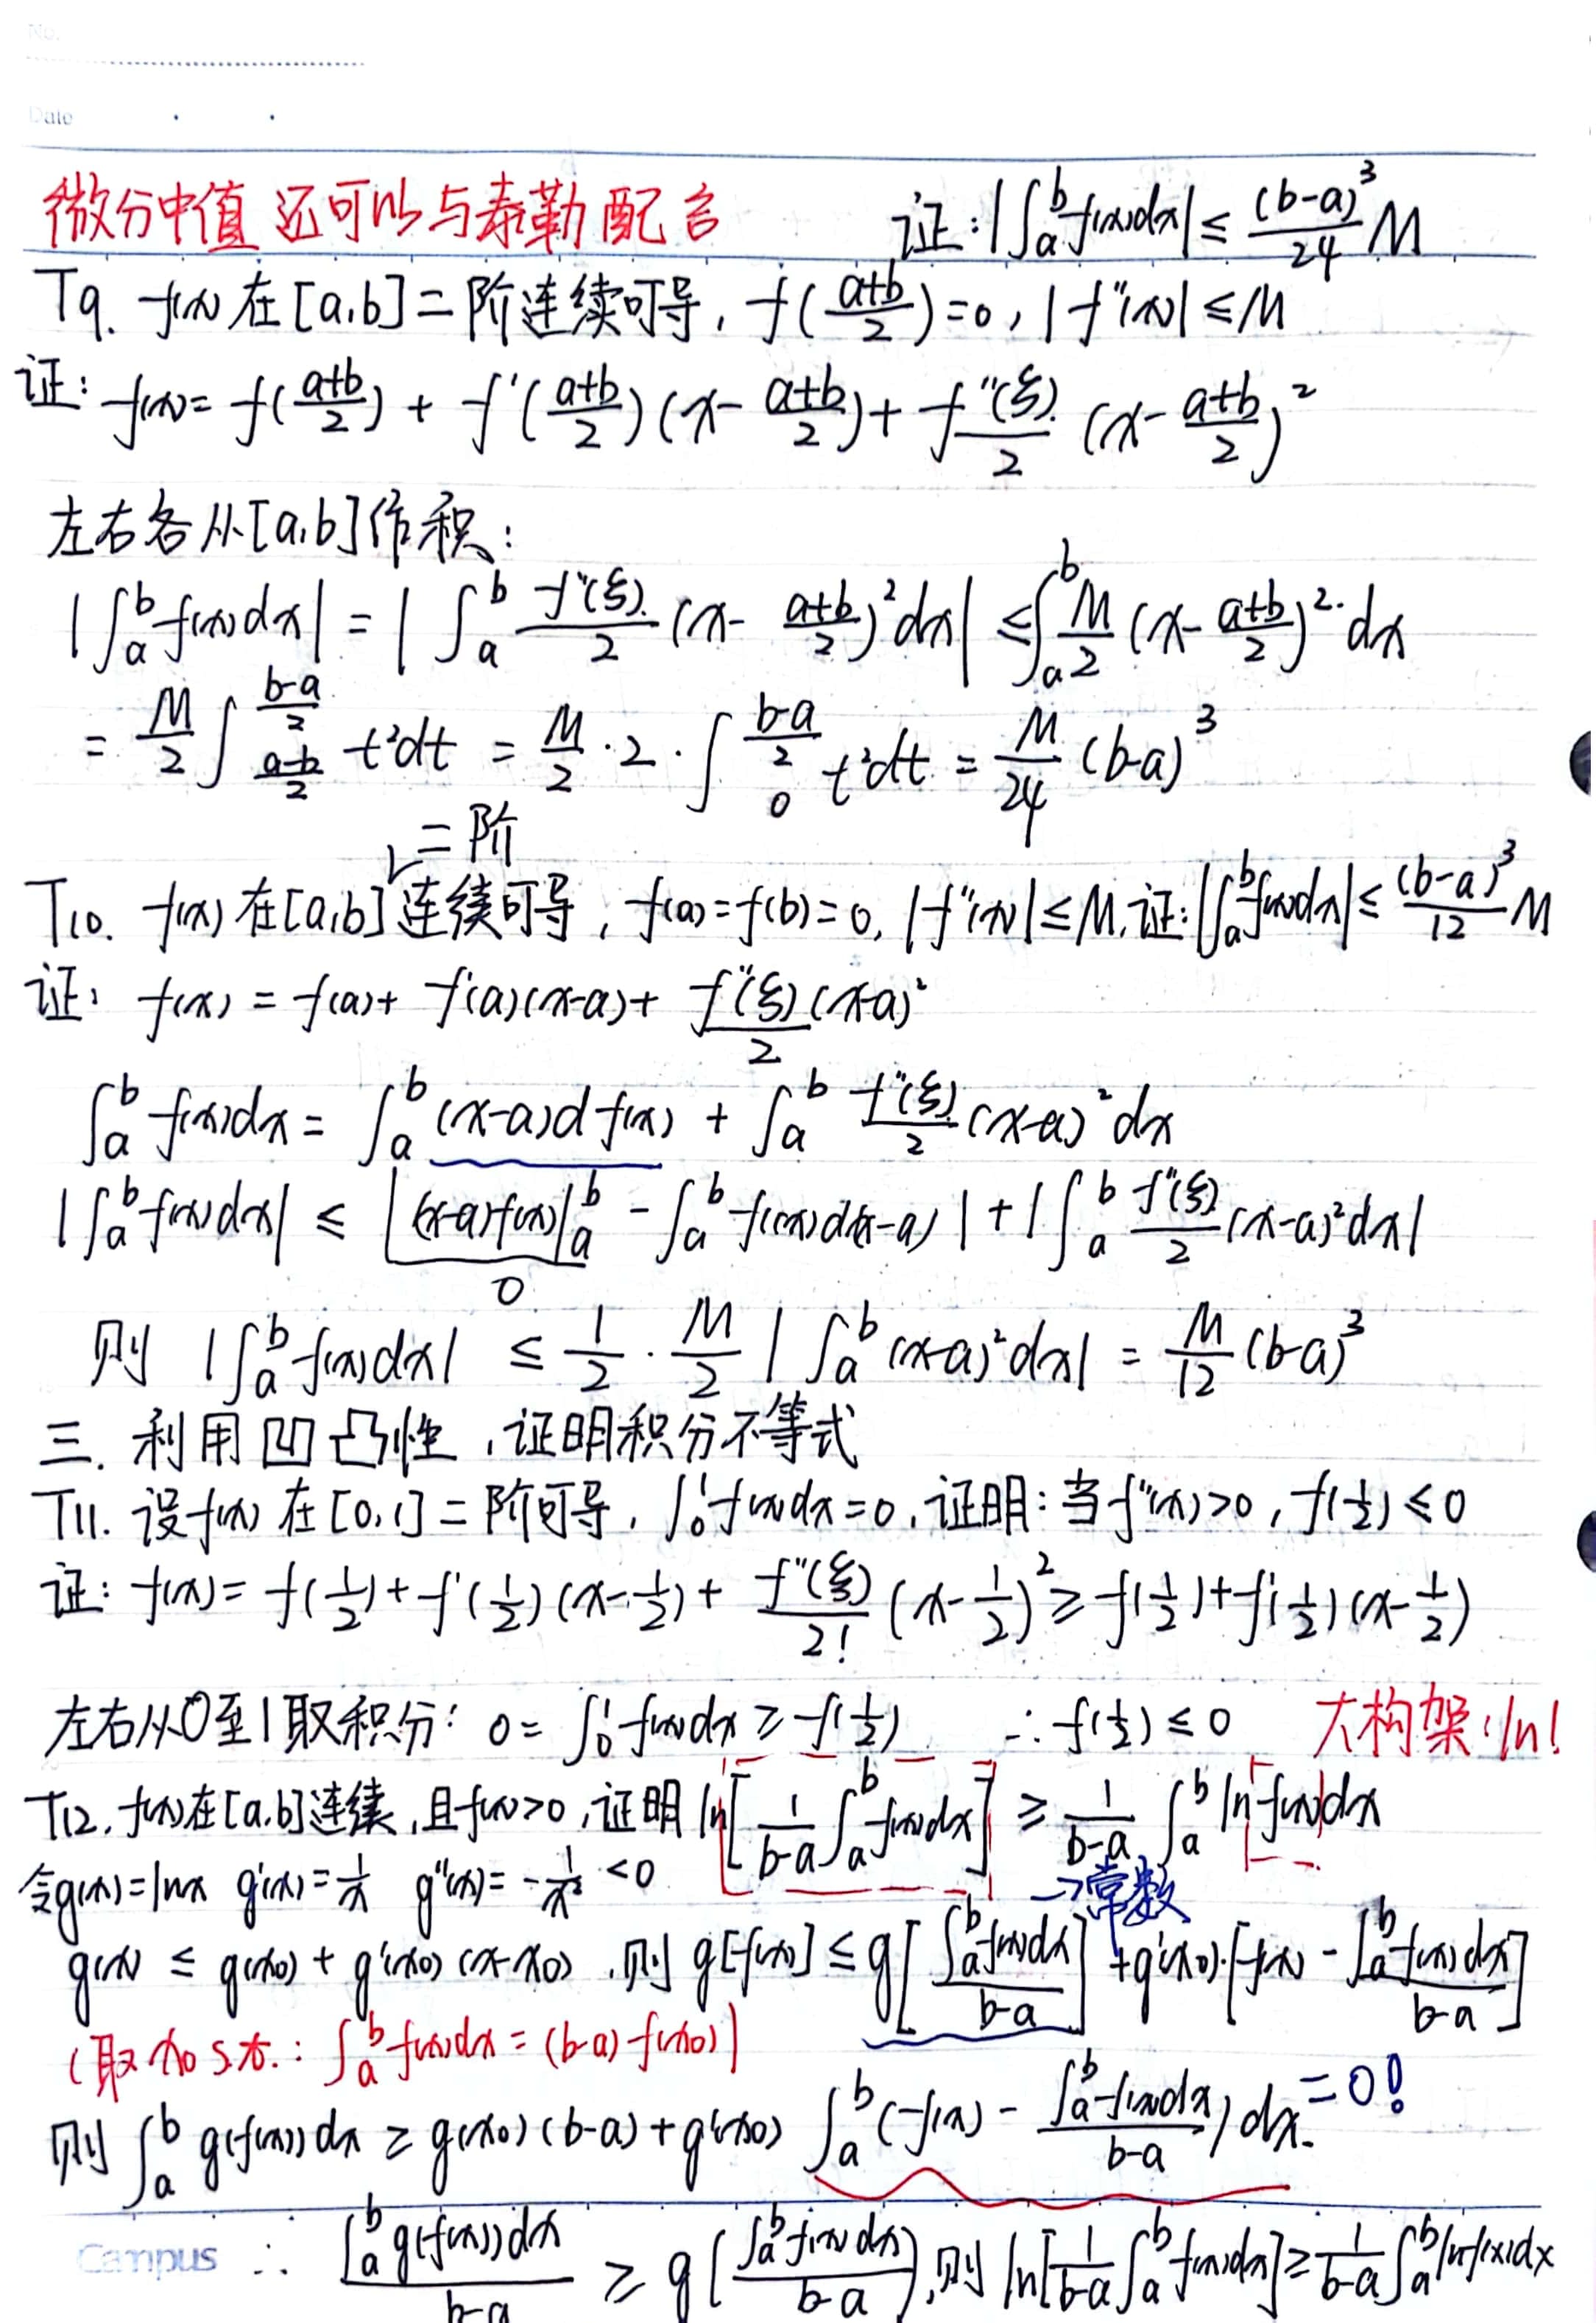 No.
Date
微分中值 还可以与泰勒配合 证:|∫_a^b f(x)dx| ≤ (b-a)³/24 M
T9. f(x)在[a,b]二阶连续可导, f((a+b)/2)=0, |f''(x)|≤M
证: f(x)= f((a+b)/2) + f'((a+b)/2)(x-(a+b)/2) + f''(ξ)/2 (x-(a+b)/2)²
左右各从[a,b]作积:
|∫_a^b f(x)dx| = |∫_a^b f''(ξ)/2 (x-(a+b)/2)²dx| ≤ ∫_a^b M/2 (x-(a+b)/2)²·dx
= M/2 ∫_{(a-b)/2}^{(b-a)/2} t²dt = M/2·2·∫_0^{(b-a)/2} t²dt = M/24 (b-a)³
二阶
T10. f(x)在[a,b]连续可导, f(a)=f(b)=0, |f''(x)|≤M, 证:|∫_a^b f(x)dx| ≤ (b-a)³/12 M
证: f(x) = f(a)+ f'(a)(x-a)+ f''(ξ)/2 (x-a)²
∫_a^b f(x)dx = ∫_a^b (x-a)d f(x) + ∫_a^b f''(ξ)/2 (x-a)²dx
|∫_a^b f(x)dx| ≤ |(x-a)f(x)|_a^b - ∫_a^b f(x)d(x-a)| + |∫_a^b f''(ξ)/2 (x-a)²dx|
0
则 |∫_a^b f(x)dx| ≤ 1/2·M/2 |∫_a^b (x-a)²dx| = M/12 (b-a)³
三. 利用凹凸性,证明积分不等式
T11. 设f(x)在[0,1]二阶可导, ∫_0^1 f(x)dx=0, 证明: 当f''(x)>0, f(1/2)≤0
证: f(x)= f(1/2)+f'(1/2)(x-1/2)+ f''(ξ)/2! (x-1/2)² ≥ f(1/2)+f'(1/2)(x-1/2)
左右从0至1取积分: 0= ∫_0^1 f(x)dx ≥ f(1/2) ∴ f(1/2)≤0 大构架:ln!
T12. f(x)在[a.b]连续,且f(x)>0,证明 ln[1/(b-a) ∫_a^b f(x)dx] ≥ 1/(b-a) ∫_a^b ln f(x)dx
令g(x)=lnx g'(x)=1/x g''(x)=-1/x² <0 →常数
g(x) ≤ g(x0)+g'(x0)(x-x0),则 g[f(x)] ≤ g[∫_a^b f(x)dx/(b-a)] +g'(x0)·[f(x) - ∫_a^b f(x)dx/(b-a)]
(取x0 s.t.: ∫_a^b f(x)dx = (b-a) f(x0))
则 ∫_a^b g(f(x))dx ≥ g(x0)(b-a)+g'(x0) ∫_a^b (f(x) - ∫_a^b f(x)dx/(b-a))dx =0!
Campus ∴ ∫_a^b g(f(x))dx/(b-a) ≥ g(∫_a^b f(x)dx/(b-a)),则 ln[1/(b-a) ∫_a^b f(x)dx] ≥ 1/(b-a) ∫_a^b lnf(x)dx